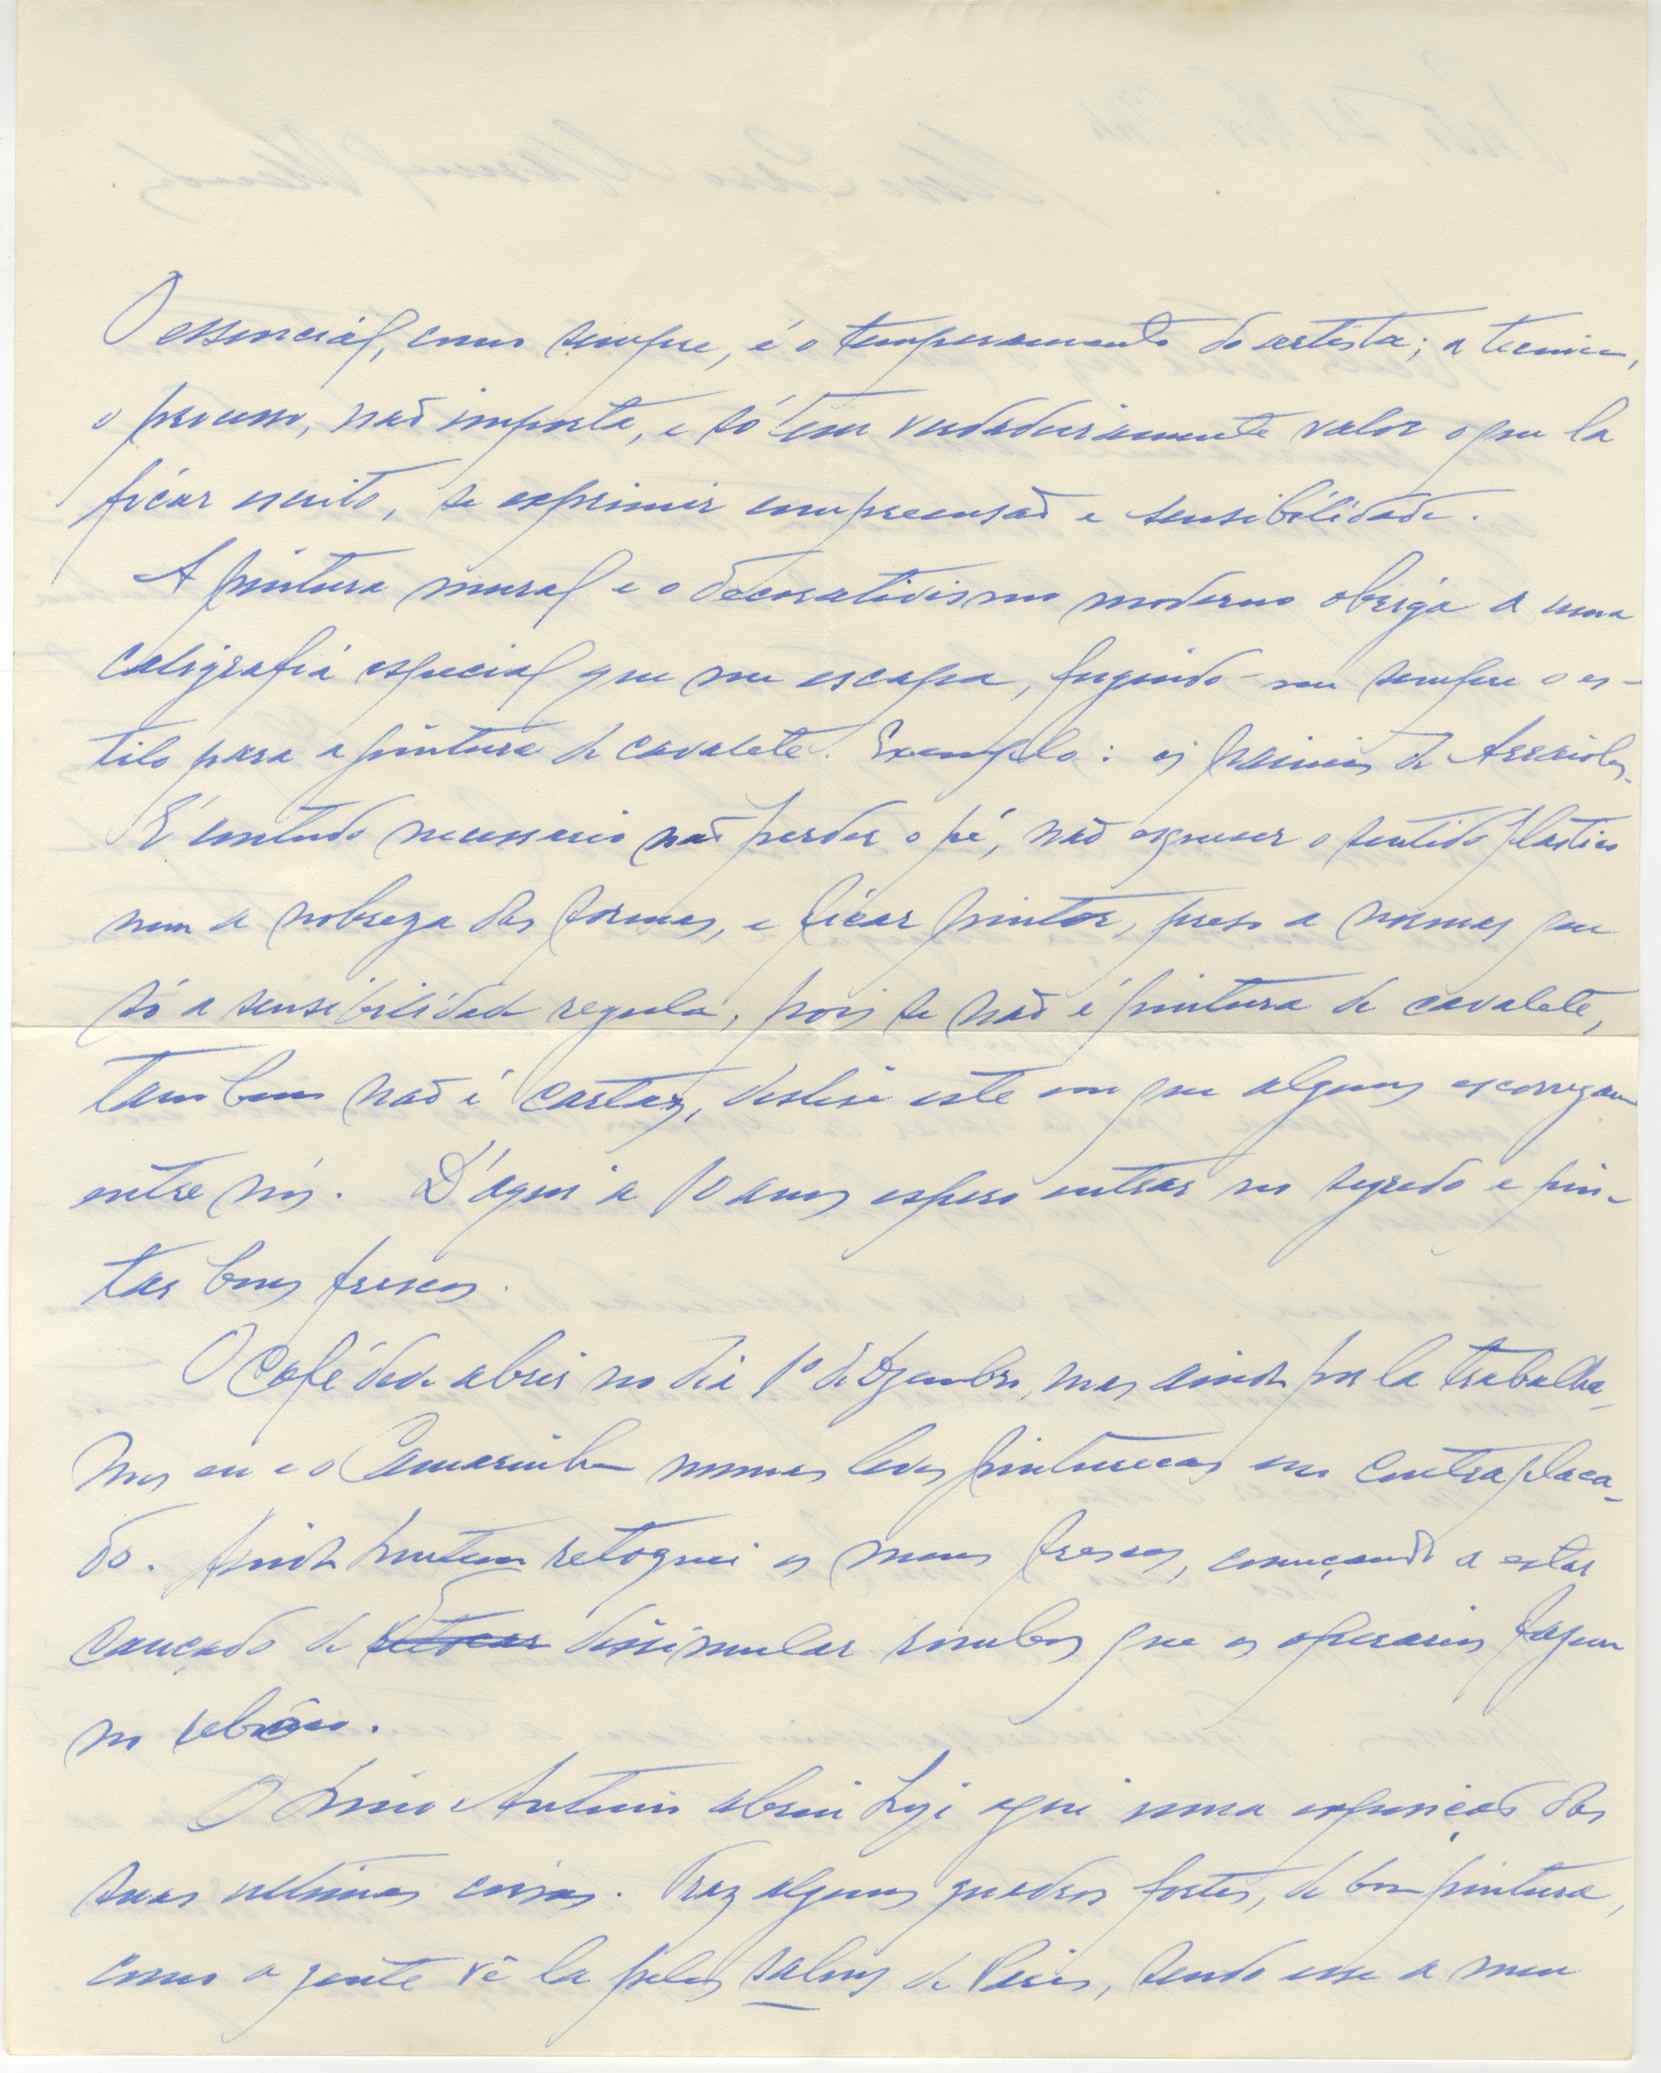 O essencial, como sempre, é o temperamento do artista; a tecnica,
o processo, não importa, e só tem verdadeiramente valor o que la
ficar escrito, se exprimir compreensão e sensibilidade.
A pintura mural e o decorativismo moderno obriga a uma
caligrafia especial que me escapa, fugindo-me sempre o es-
tilo para a pintura de cavalete. Exemplo: os paineis de Arraiolos.
É contudo necessario não perder o pé, não esquecer o sentido plastico
nem a nobreza das formas, e ficar pintor, preso a normas que
só a sensibilidade regula, pois se não é pintura de cavalete,
tambem não é cartaz, deslise este em que alguns escorregam
entre nós. D'aqui a 10 anos espero entrar no segredo e pin-
tar bons frescos.
O Café deve abrir no dia 1º de Dezembro, mas ainda por la trabalha-
mos eu e o Camarinha numas leves pinturecas em contraplaca-
do. Ainda hontem retoquei os meus frescos, começando a estar
cançado de retocar dissimular rombos que os operarios fazem
no rebôco.
O Antonio abriu hoje aqui uma exposição das
suas ultimas coisas. Traz alguns quadros fortes, de boa pintura,
como a gente vê la pelos salons de Paris, sendo esse a meu